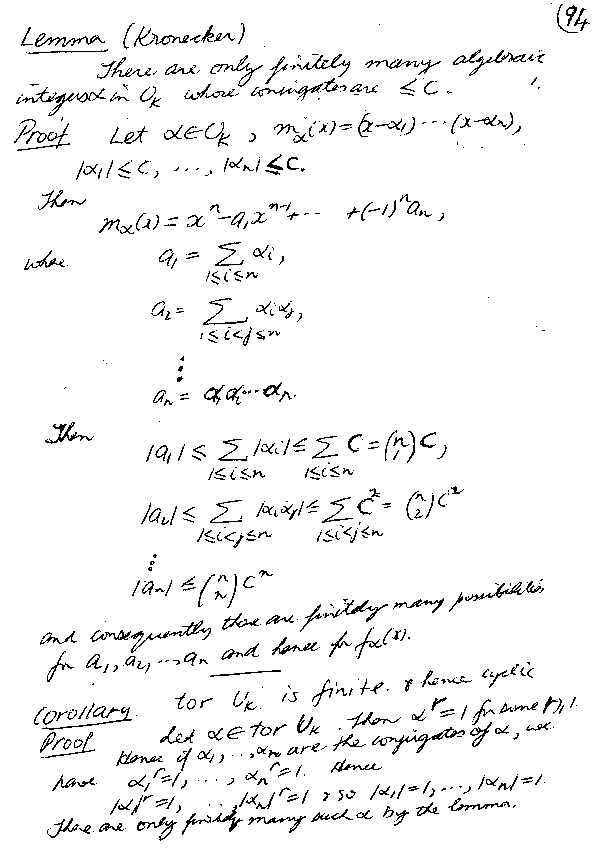 94
Lemma (Kronecker)
There are only finitely many algebraic
integers α in O_K whose conjugates are ≤ C.
Proof Let α ∈ O_K, m_α(x) = (x-α₁) ⋯ (x-αₙ),
|α₁| ≤ C, ..., |αₙ| ≤ C.
Then
m_α(x) = xⁿ - a₁xⁿ⁻¹ + ⋯ + (-1)ⁿaₙ,
where a₁ = ∑_{1≤i≤n} αᵢ,
a₂ = ∑_{1≤i<j≤n} αᵢαⱼ,
⋮
aₙ = α₁α₂⋯αₙ.
Then
|a₁| ≤ ∑_{1≤i≤n} |αᵢ| ≤ ∑_{1≤i≤n} C = (n 1) C,
|a₂| ≤ ∑_{1≤i<j≤n} |αᵢαⱼ| ≤ ∑_{1≤i<j≤n} C² = (n 2) C²
⋮
|aₙ| ≤ (n n) Cⁿ
and consequently there are finitely many possibilities
for a₁, a₂, ..., aₙ and hence for f_α(x).
Corollary tor U_K is finite. & hence cyclic
Proof Let α ∈ tor U_K. Then αʳ = 1 for some r ≥ 1.
Hence if α₁, ..., αₙ are the conjugates of α, we
have α₁ʳ = 1, ..., αₙʳ = 1. Hence
|α₁|ʳ = 1, ..., |αₙ|ʳ = 1 & so |α₁| = 1, ..., |αₙ| = 1.
There are only finitely many such α by the lemma.